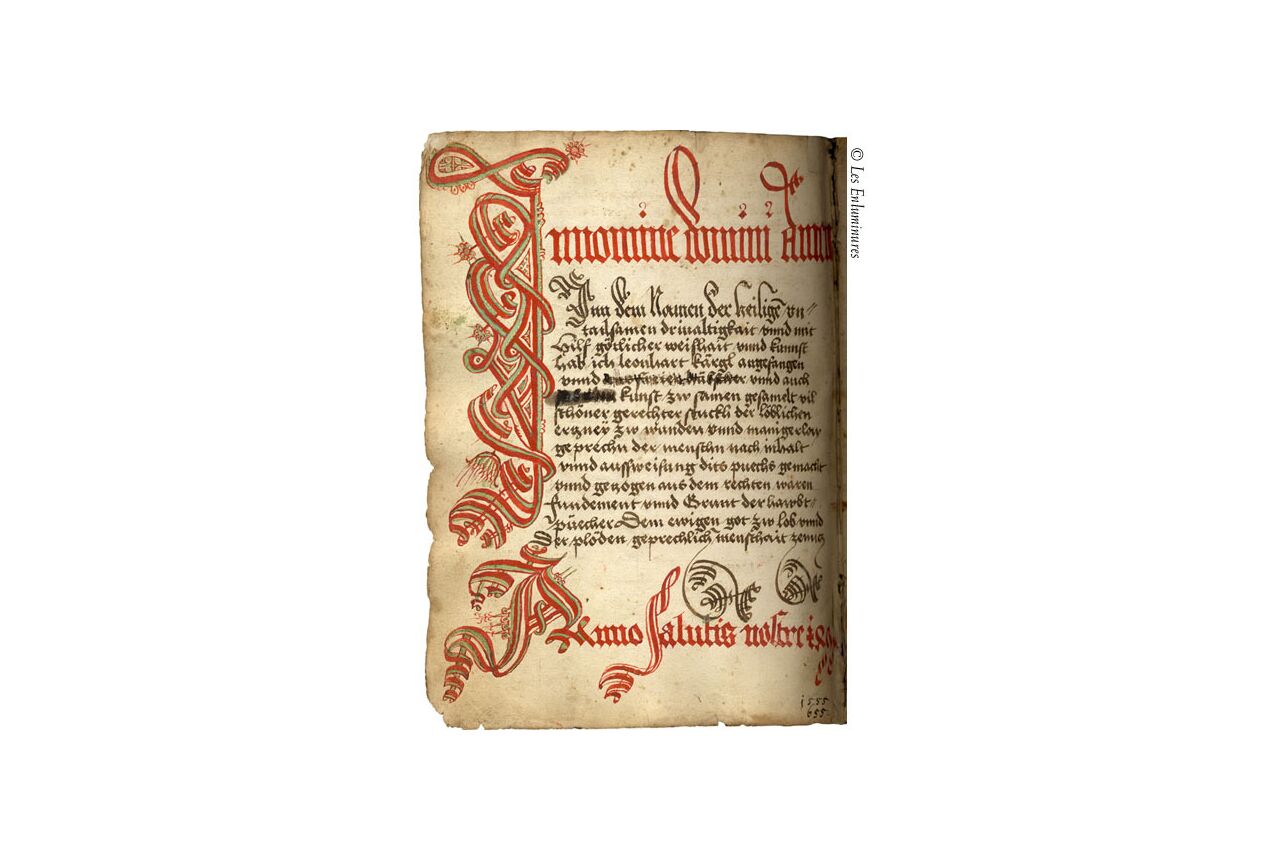 In nomine domini Amen
Inn dem Namen der heiligē vn=
tailsamen driualtigkait vnnd mit
Hilf götlicher weishait vnnd kunnst
hab ich leonhart kärgl angefangen
vnnd vnnd auch
kunst zw samen gesamelt vil
schöner gerechter stuckh der löblichen
ertzney zw wunden vnnd manigerlay
geprechn der menschn nach inhalt
vnnd aussweisung dits puechs gemacht
vnnd getzogen aus dem rechten waren
fundement vnnd Grunt der hawbt=
püecher Dem ewigen got zw lob vnnd
der ploden geprechlich menschait
Anno salutis nostre
1555
655
© Les Enluminures